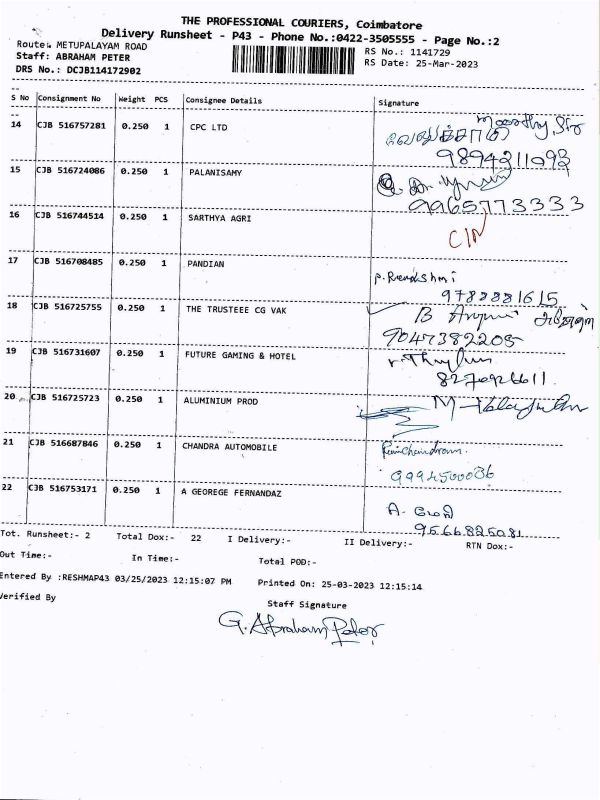 THE PROFESSIONAL COURIERS, Coimbatore
Delivery Runsheet - P43 - Phone No.:0422-3505555 - Page No.:2
Route: METUPALAYAM ROAD
RS No.: 1141729
Staff: ABRAHAM PETER
RS Date: 25-Mar-2023
DRS No.: DCJB114172902
S No Consignment No Weight PCS Consignee Details Signature
14 CJB 516757281 0.250 1 CPC LTD
Moorthy Sir
9894211093
15 CJB 516724086 0.250 1 PALANISAMY
9965773333
16 CJB 516744514 0.250 1 SARTHYA AGRI
17 CJB 516708485 0.250 1 PANDIAN
18 CJB 516725755 0.250 1 THE TRUSTEEE CG VAK
9047382205
19 CJB 516731607 0.250 1 FUTURE GAMING & HOTEL
20 CJB 516725723 0.250 1 ALUMINIUM PROD
21 CJB 516687846 0.250 1 CHANDRA AUTOMOBILE
Ramchandran
9994500036
22 CJB 516753171 0.250 1 A GEOREGE FERNANDAZ
9566825081
Tot. Runsheet:- 2 Total Dox:- 22 I Delivery:- II Delivery:- RTN Dox:-
Out Time:- In Time:- Total POD:-
Entered By :RESHMAP43 03/25/2023 12:15:07 PM Printed On: 25-03-2023 12:15:14
Verified By
Staff Signature
G. Abraham Peter